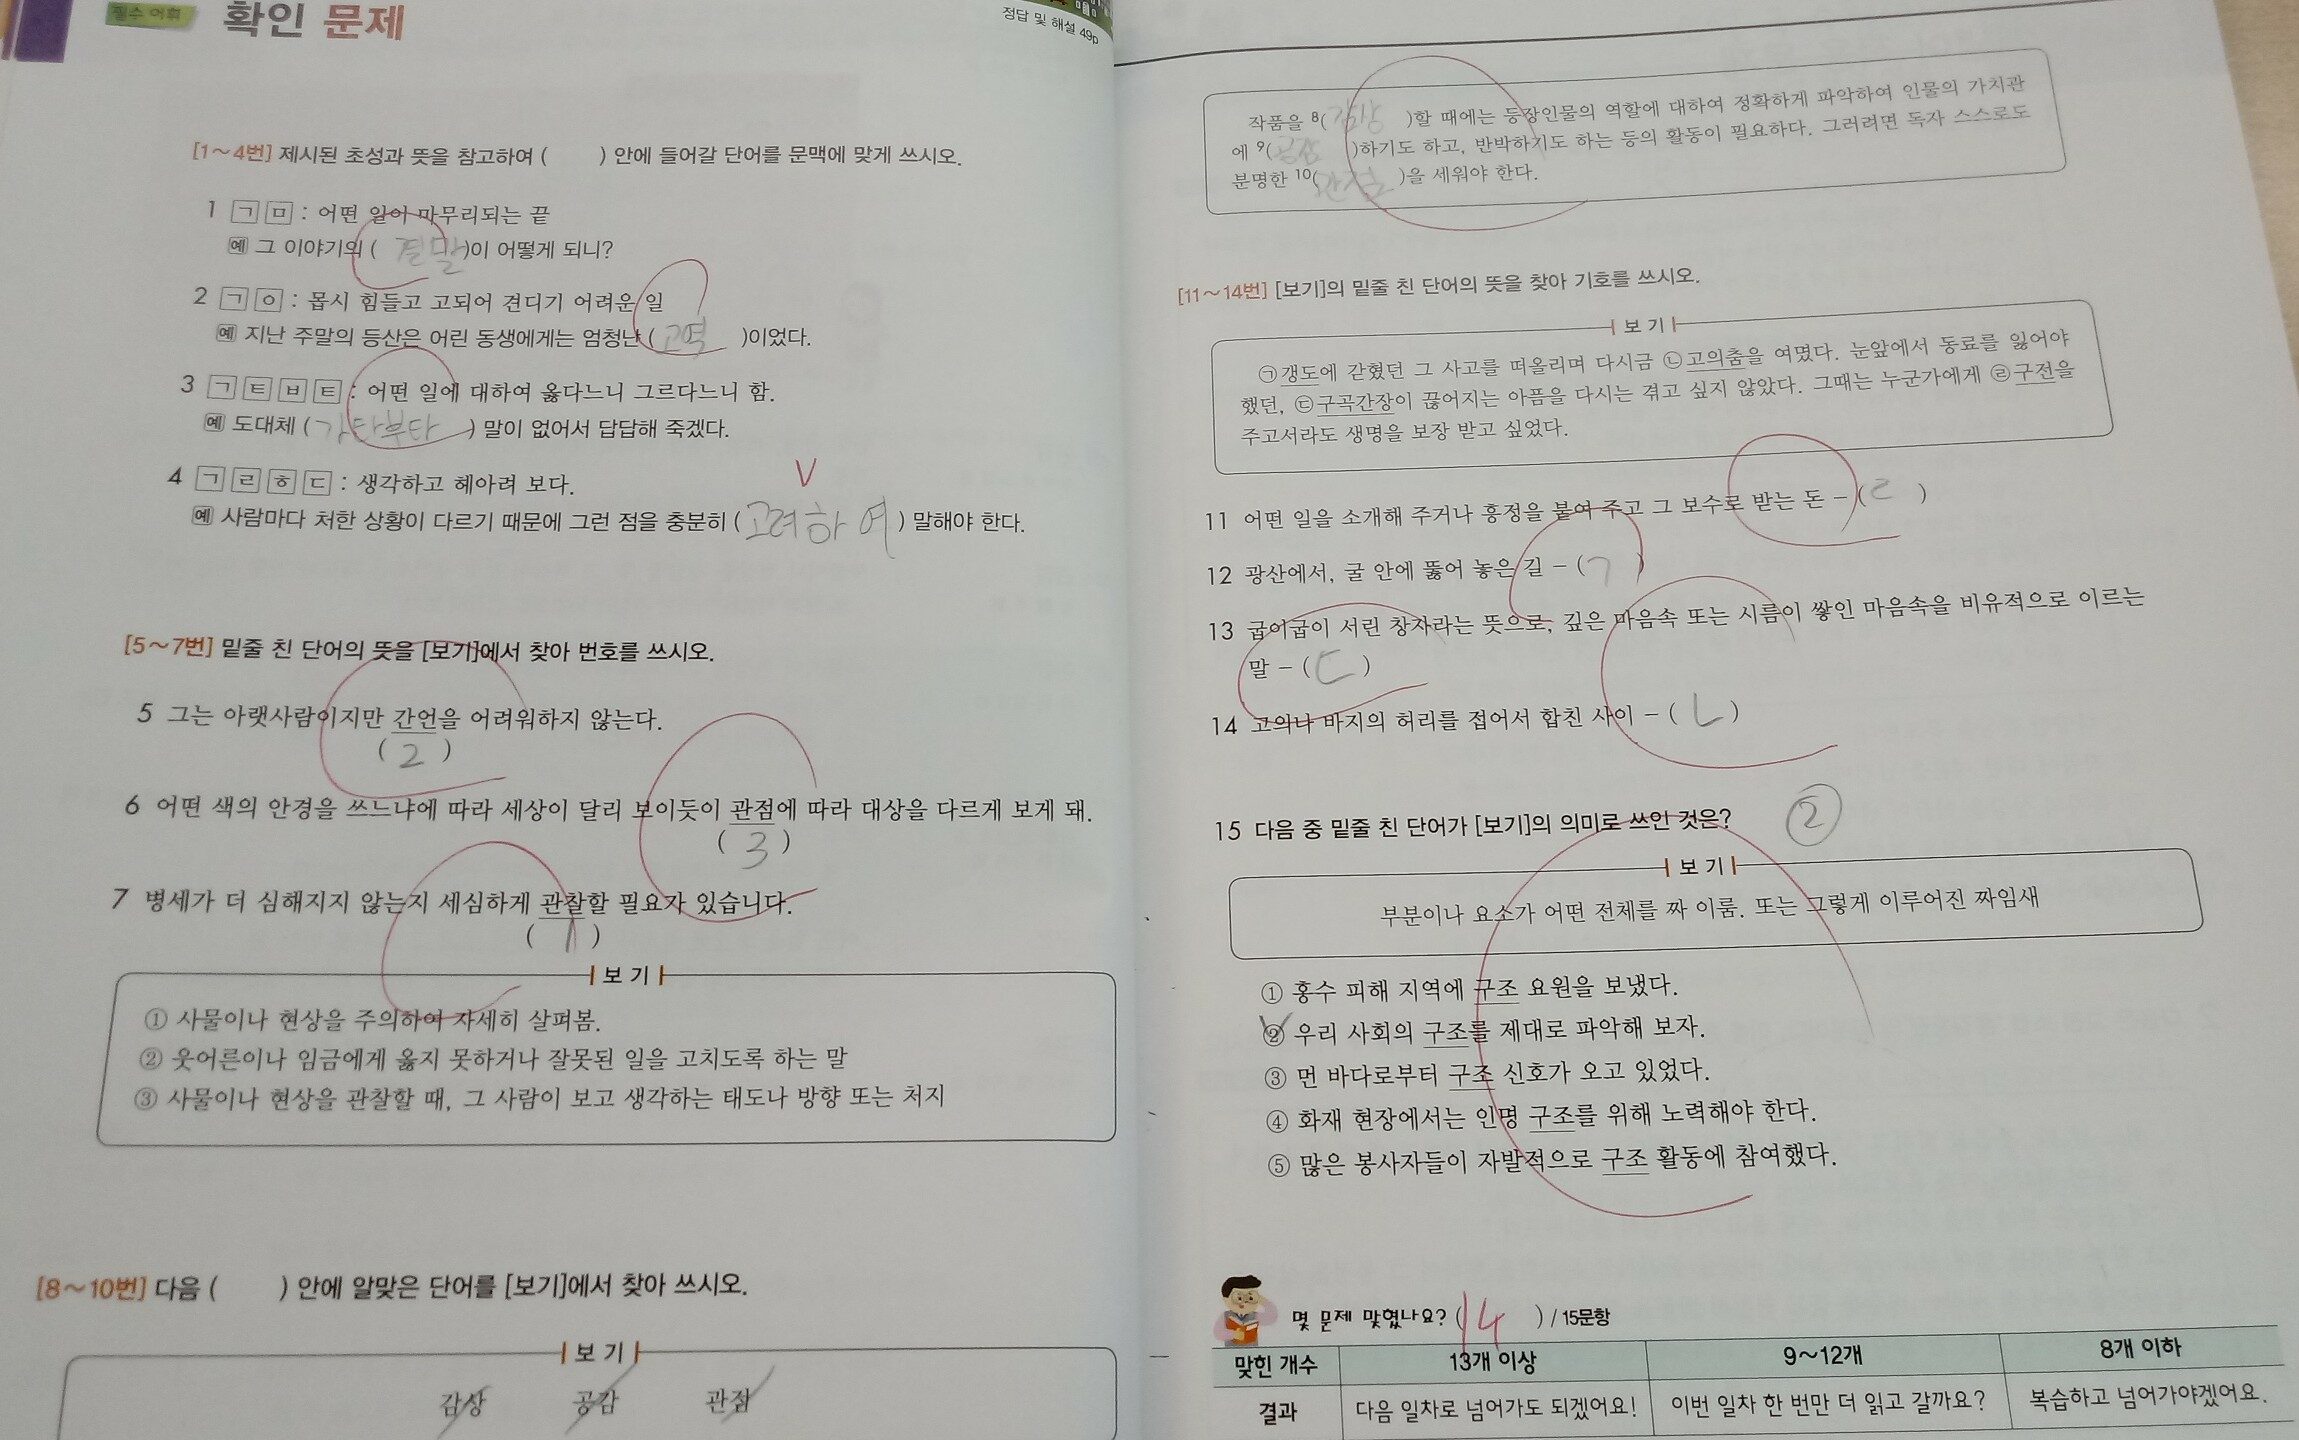 필수 어휘 확인 문제
정답 및 해설 49p
[1~4번] 제시된 초성과 뜻을 참고하여 ( ) 안에 들어갈 단어를 문맥에 맞게 쓰시오.
1 ㄱ ㅁ : 어떤 일이 마무리되는 끝
예 그 이야기의 ( 결말 )이 어떻게 되니?
2 ㄱ ㅇ : 몹시 힘들고 고되어 견디기 어려운 일
예 지난 주말의 등산은 어린 동생에게는 엄청난 ( 고역 )이었다.
3 ㄱ ㅌ ㅂ ㅌ : 어떤 일에 대하여 옳다느니 그르다느니 함.
예 도대체 ( 가타부타 ) 말이 없어서 답답해 죽겠다.
V
4 ㄱ ㄹ ㅎ ㄷ : 생각하고 헤아려 보다.
예 사람마다 처한 상황이 다르기 때문에 그런 점을 충분히 ( 고려하여 ) 말해야 한다.
[5~7번] 밑줄 친 단어의 뜻을 [보기]에서 찾아 번호를 쓰시오.
5 그는 아랫사람이지만 간언을 어려워하지 않는다.
( 2 )
6 어떤 색의 안경을 쓰느냐에 따라 세상이 달리 보이듯이 관점에 따라 대상을 다르게 보게 돼.
( 3 )
7 병세가 더 심해지지 않는지 세심하게 관찰할 필요가 있습니다.
( 1 )
보기
① 사물이나 현상을 주의하여 자세히 살펴봄.
② 웃어른이나 임금에게 옳지 못하거나 잘못된 일을 고치도록 하는 말
③ 사물이나 현상을 관찰할 때, 그 사람이 보고 생각하는 태도나 방향 또는 처지
[8~10번] 다음 ( ) 안에 알맞은 단어를 [보기]에서 찾아 쓰시오.
보기
감상 공감 관점
작품을 8( 감상 )할 때에는 등장인물의 역할에 대하여 정확하게 파악하여 인물의 가치관
에 9( 공감 )하기도 하고, 반박하기도 하는 등의 활동이 필요하다. 그러려면 독자 스스로도
분명한 10( 관점 )을 세워야 한다.
[11~14번] [보기]의 밑줄 친 단어의 뜻을 찾아 기호를 쓰시오.
보기
㉠갱도에 갇혔던 그 사고를 떠올리며 다시금 ㉡고의춤을 여몄다. 눈앞에서 동료를 잃어야
했던, ㉢구곡간장이 끊어지는 아픔을 다시는 겪고 싶지 않았다. 그때는 누군가에게 ㉣구전을
주고서라도 생명을 보장 받고 싶었다.
11 어떤 일을 소개해 주거나 흥정을 붙여 주고 그 보수로 받는 돈 – ( ㄹ )
12 광산에서, 굴 안에 뚫어 놓은 길 – ( ㄱ )
13 굽이굽이 서린 창자라는 뜻으로, 깊은 마음속 또는 시름이 쌓인 마음속을 비유적으로 이르는
말 – ( ㄷ )
14 고의나 바지의 허리를 접어서 합친 사이 – ( ㄴ )
15 다음 중 밑줄 친 단어가 [보기]의 의미로 쓰인 것은? ②
보기
부분이나 요소가 어떤 전체를 짜 이룸. 또는 그렇게 이루어진 짜임새
① 홍수 피해 지역에 구조 요원을 보냈다.
② 우리 사회의 구조를 제대로 파악해 보자.
③ 먼 바다로부터 구조 신호가 오고 있었다.
④ 화재 현장에서는 인명 구조를 위해 노력해야 한다.
⑤ 많은 봉사자들이 자발적으로 구조 활동에 참여했다.
몇 문제 맞혔나요? ( 14 ) / 15문항
맞힌 개수 13개 이상 9~12개 8개 이하
결과 다음 일차로 넘어가도 되겠어요! 이번 일차 한 번만 더 읽고 갈까요? 복습하고 넘어가야겠어요.